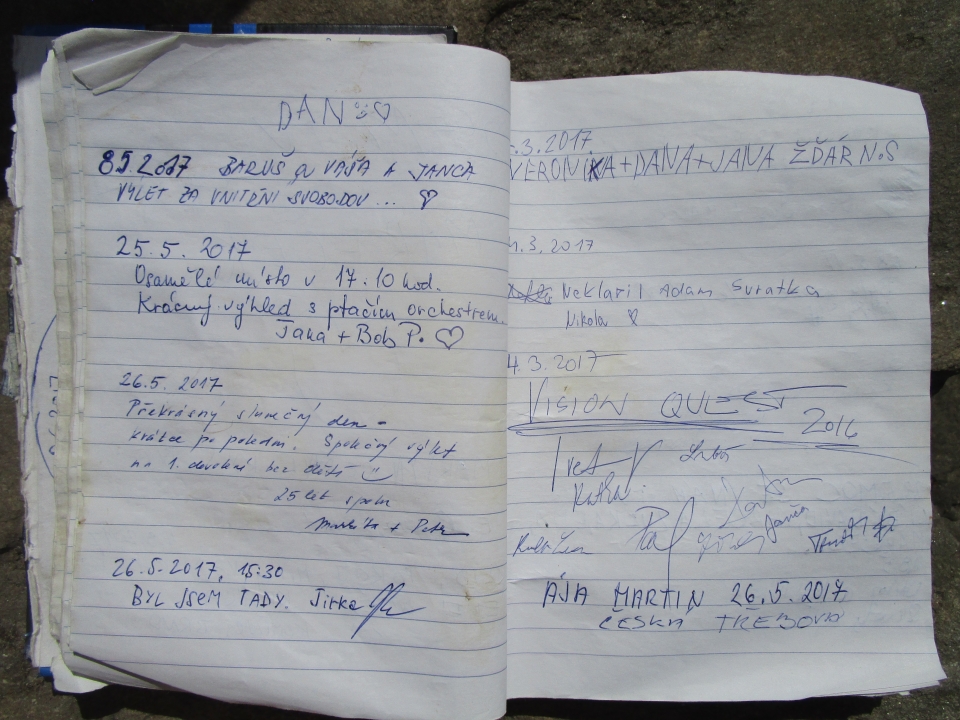 DAN
8.5.2017 BARUŠ A VÁŠA A JANČA
VÝLET ZA VNITŘNÍ SVOBODOV...
25.5. 2017
Osamělé místo v 17.10 hod.
Krásný výhled s ptačím orchestrem.
Jana + Bob P.
26.5. 2017
Překrásný slunečný den -
krátce po poledni. Společný výlet
na 1. dovolené bez dětí
25 let spolu
+ Petr
26.5.2017, 15:30
BYL JSEM TADY. Jirka
.3.2017
VERONIKA+DANA+JANA ŽĎÁR N.S
.3.2017
Neklaril Adam Svratka
Nikola
4.3.2017
VISION QUEST
2016
Katka
Janča
AJA MARTIN 26.5.2017
ČESKÁ TŘEBOVÁ